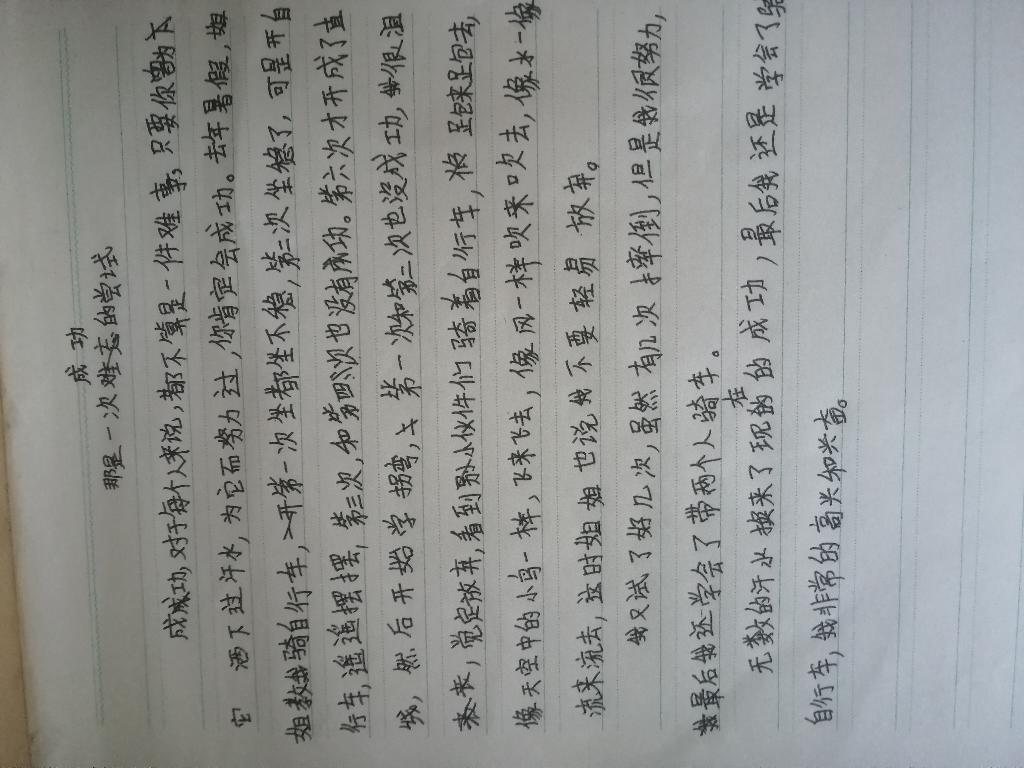 成功
那是一次难忘的尝试
成成功,对于每个人来说,都不算是一件难事,只要你曾为
它洒下过汗水,为它而努力过,你肯定会成功。去年暑假,姐
姐教我骑自行车,开第一次坐都坐不稳,第二次坐稳了,可是开自
行车,遥遥摆摆,第三次,和第四次也没有成功。第六次才开成了直
线,然后开始学拐弯,第一次和第二次也没成功,我很沮
丧,觉定放弃,看到别小伙伴们骑着自行车,像飞来飞去,
像天空中的小鸟一样,飞来飞去,像风一样吹来吹去,像水一像
流来流去,这时姐姐也说我不要轻易放弃。
我又试了好几次,虽然有几次摔倒,但是我很努力,
最后我还学会了带两个人骑车。
无数的汗水换来了现在的的成功,最后我还是学会了
自行车,我非常的高兴和兴奋。